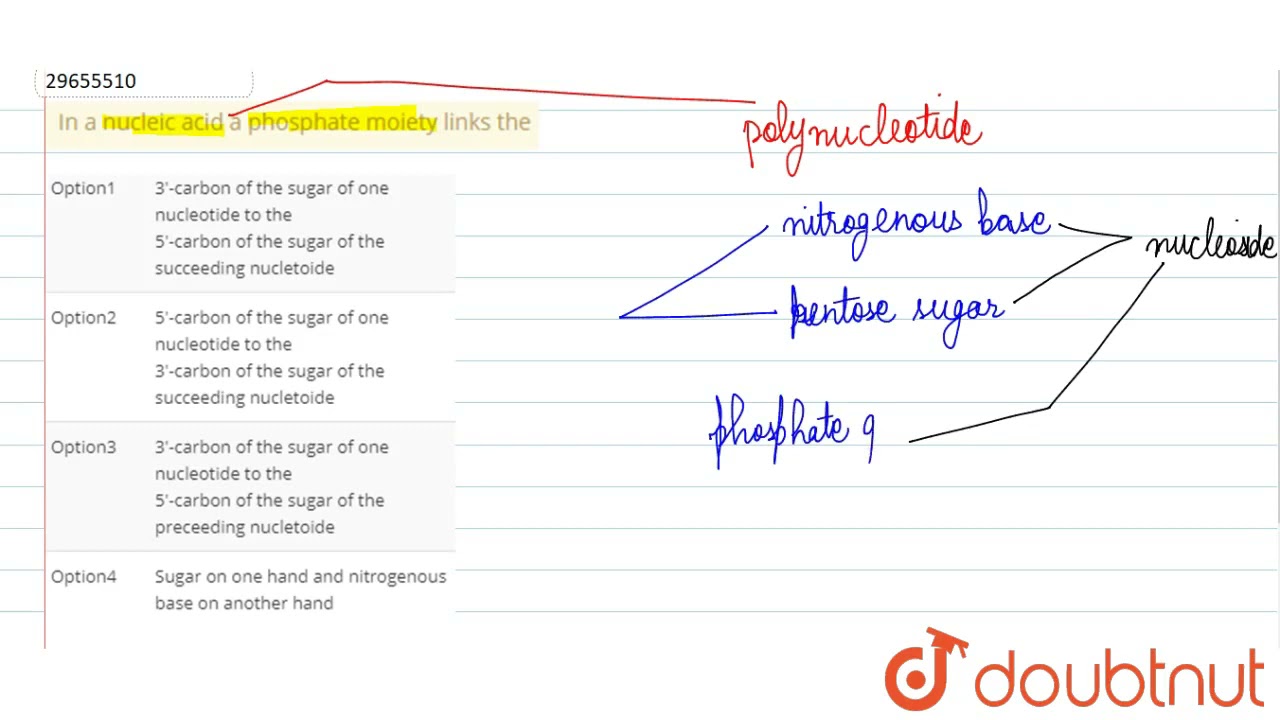 29655510
In a nucleic acid a phosphate moiety links the
polynucleotide
Option1 3'-carbon of the sugar of one
nucleotide to the
5'-carbon of the sugar of the
succeeding nucletoide
nitrogenous base
nucleoside
pentose sugar
Option2 5'-carbon of the sugar of one
nucleotide to the
3'-carbon of the sugar of the
succeeding nucletoide
phosphate g
Option3 3'-carbon of the sugar of one
nucleotide to the
5'-carbon of the sugar of the
preceeding nucletoide
Option4 Sugar on one hand and nitrogenous
base on another hand
doubtnut